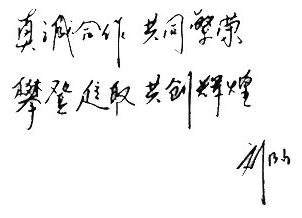 真诚合作 共同繁荣
攀登进取 共创辉煌